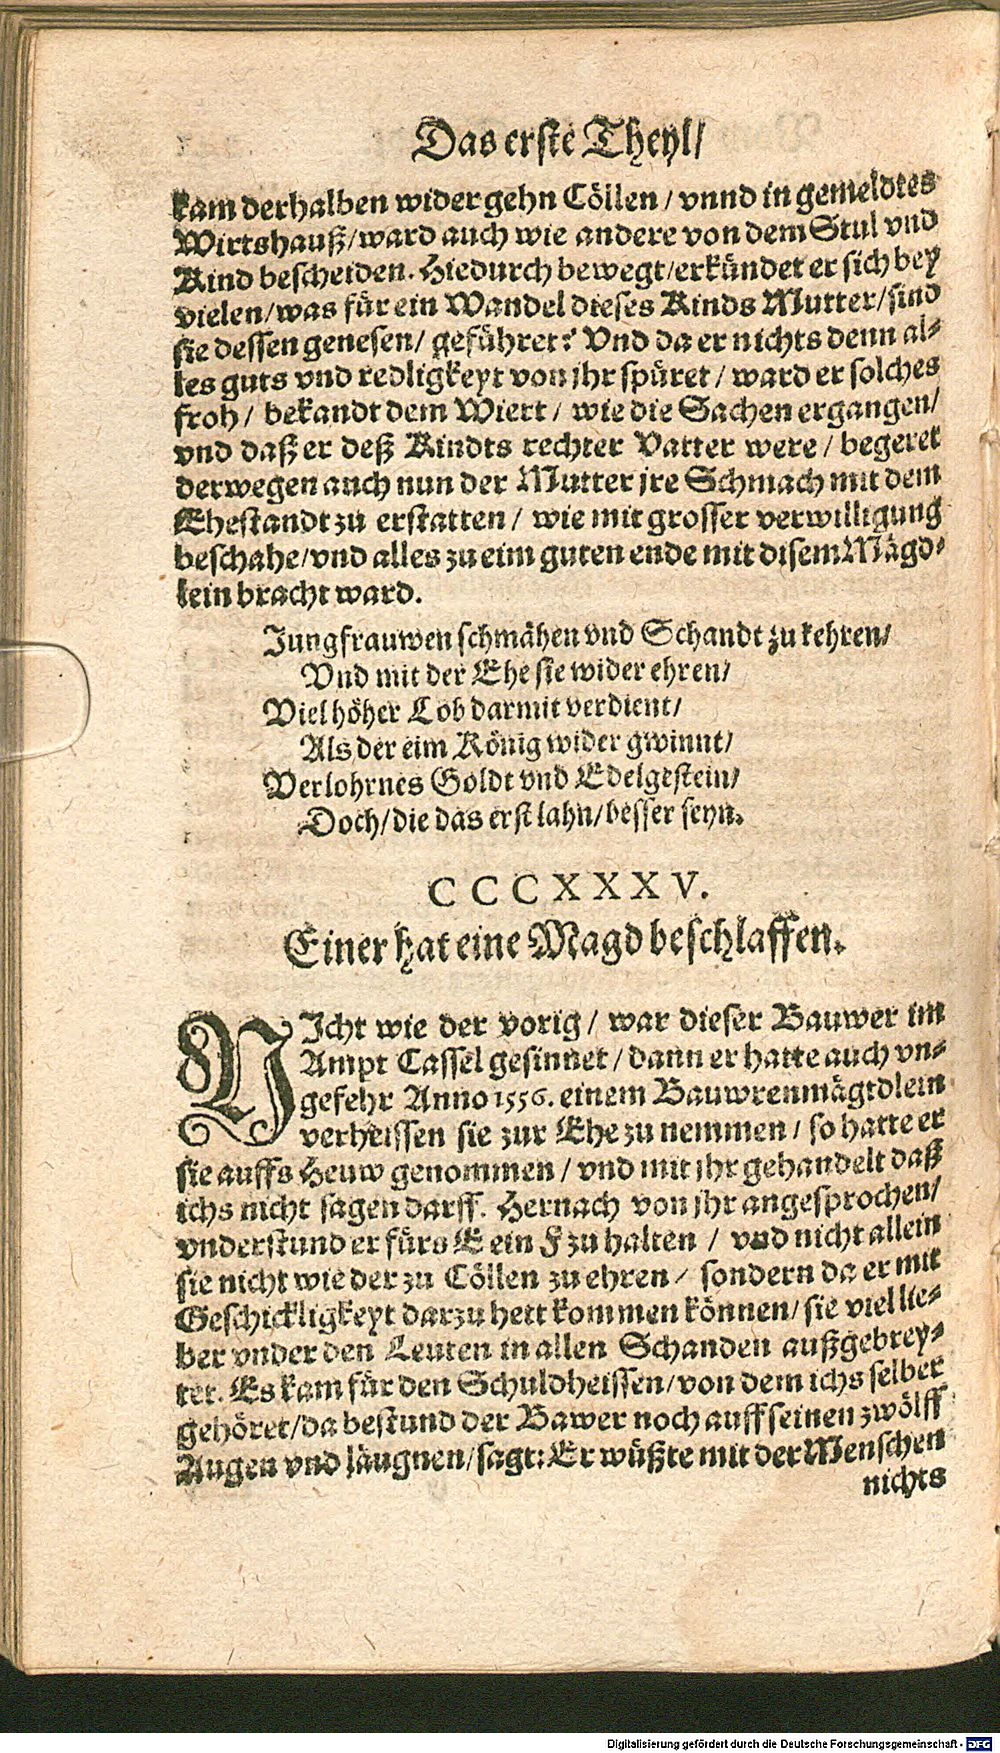 Das erste Theyl/
kam derhalben wider gehn Cöllen / vnnd in gemeldtes
Wirtshauß/ward auch wie andere von dem Stul vnd
Kind bescheiden. Hiedurch bewegt/erkündet er sich bey
vielen/was für ein Wandel dieses Kinds Mutter/sind
sie dessen genesen/ geführet? Vnd da er nichts denn al-
les guts vnd redligkeyt von jhr spüret / ward er solches
froh / bekandt dem Wiert / wie die Sachen ergangen/
vnd daß er deß Kindts rechter Vatter were / begeret
derwegen auch nun der Mutter jre Schmach mit dem
Ehestandt zu erstatten / wie mit grosser verwilligung
beschahe/vnd alles zu eim guten ende mit disem Mägd-
lein bracht ward.
Jungfrauwen schmähen vnd Schandt zu kehren/
Vnd mit der Ehe sie wider ehren/
Viel höher Lob darmit verdient/
Als der eim König wider gwinnt/
Verlohrnes Goldt vnd Edelgestein/
Doch/die das erst lahn/besser seyn.
CCCXXXV.
Einer hat eine Magd beschlaffen.
NIcht wie der vorig / war dieser Bauwer im
Ampt Cassel gesinnet / dann er hatte auch vn-
gefehr Anno 1556. einem Bauwrenmägtdlein
verheissen sie zur Ehe zu nemmen / so hatte er
sie auffs Heuw genommen / vnd mit jhr gehandelt daß
ichs nicht sagen darff. Hernach von jhr angesprochen/
vnderstund er fürs E ein F zu halten / vnd nicht allein
sie nicht wie der zu Cöllen zu ehren / sondern da er mit
Geschickligkeyt darzu hett kommen können/ sie viel lie-
ber vnder den Leuten in allen Schanden außgebrey-
tet. Es kam für den Schuldheissen/von dem ichs selber
gehöret/da bestund der Bawer noch auff seinen zwölff
Augen vnd läugnen/sagt: Er wüßte mit der Menschen
nichts
Digitalisierung gefördert durch die Deutsche Forschungsgemeinschaft - DFG